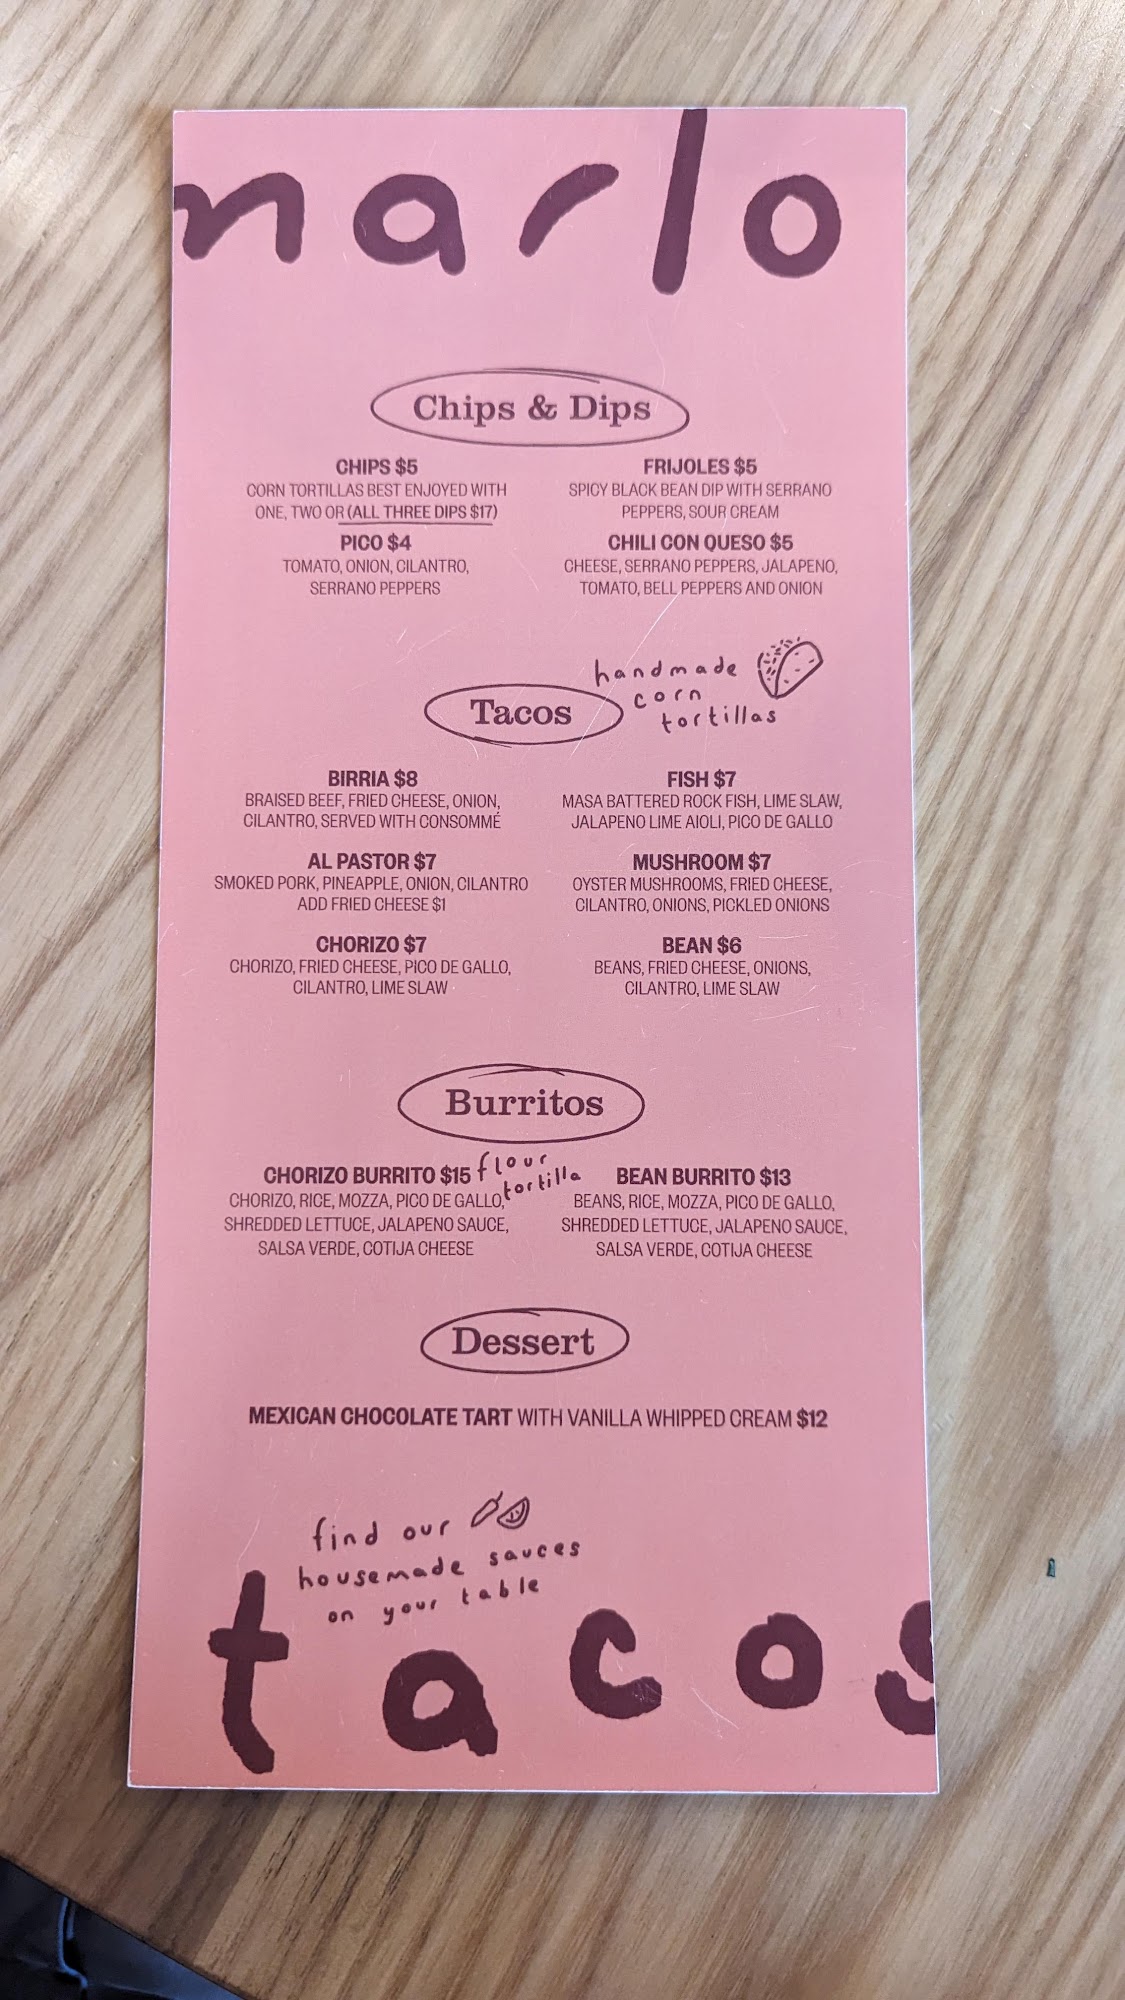 marlo
Chips & Dips
CHIPS $5
CORN TORTILLAS BEST ENJOYED WITH
ONE, TWO OR (ALL THREE DIPS $17)
PICO $4
TOMATO, ONION, CILANTRO,
SERRANO PEPPERS
FRIJOLES $5
SPICY BLACK BEAN DIP WITH SERRANO
PEPPERS, SOUR CREAM
CHILI CON QUESO $5
CHEESE, SERRANO PEPPERS, JALAPENO,
TOMATO, BELL PEPPERS AND ONION
Tacos
handmade
corn
tortillas
BIRRIA $8
BRAISED BEEF, FRIED CHEESE, ONION,
CILANTRO, SERVED WITH CONSOMMÉ
AL PASTOR $7
SMOKED PORK, PINEAPPLE, ONION, CILANTRO
ADD FRIED CHEESE $1
CHORIZO $7
CHORIZO, FRIED CHEESE, PICO DE GALLO,
CILANTRO, LIME SLAW
FISH $7
MASA BATTERED ROCK FISH, LIME SLAW,
JALAPENO LIME AIOLI, PICO DE GALLO
MUSHROOM $7
OYSTER MUSHROOMS, FRIED CHEESE,
CILANTRO, ONIONS, PICKLED ONIONS
BEAN $6
BEANS, FRIED CHEESE, ONIONS,
CILANTRO, LIME SLAW
Burritos
flour
tortilla
CHORIZO BURRITO $15
CHORIZO, RICE, MOZZA, PICO DE GALLO,
SHREDDED LETTUCE, JALAPENO SAUCE,
SALSA VERDE, COTIJA CHEESE
BEAN BURRITO $13
BEANS, RICE, MOZZA, PICO DE GALLO,
SHREDDED LETTUCE, JALAPENO SAUCE,
SALSA VERDE, COTIJA CHEESE
Dessert
MEXICAN CHOCOLATE TART WITH VANILLA WHIPPED CREAM $12
find our
housemade sauces
on your table
tacos